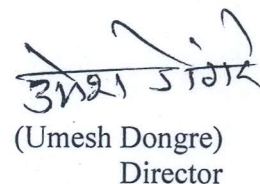 उमेश डोंगरे
(Umesh Dongre)
Director